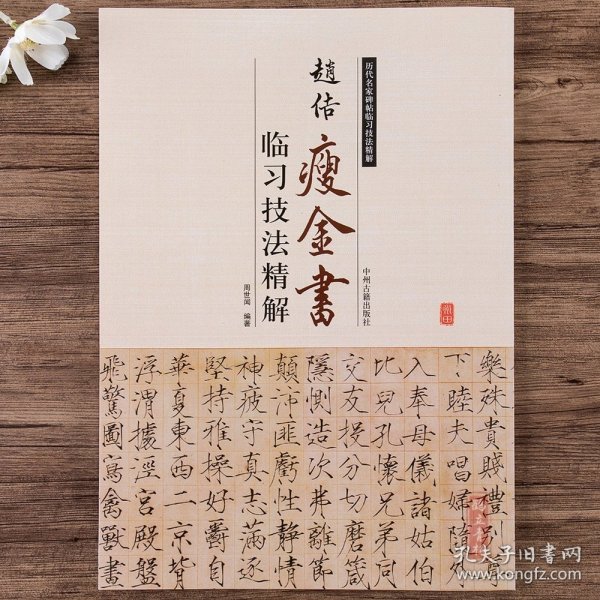 历代名家碑帖临习技法精解
趙佶
瘦金書
临习技法精解
中州古籍出版社
周世闻 编著
樂殊貴賤禮別尊
下睦夫唱婦隨外
入奉母儀諸姑伯
比兒孔懷兄弟同
交友投分切磨箴
隱惻造次弗離節
顛沛匪虧性靜情
神疲守真志滿逐
堅持雅操好爵自
華夏東西二京背
浮渭據涇宮殿盤
飛驚圖寫禽獸畫
孔夫子旧书网
www.kongfz.com